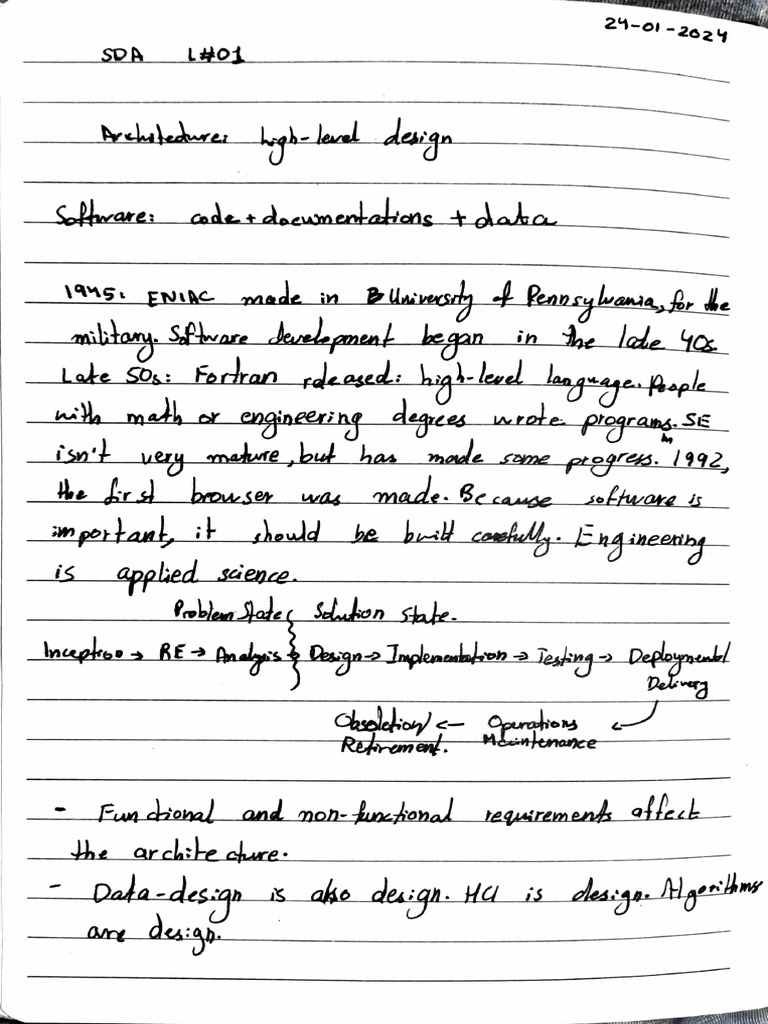 24-01-2024
SDA L#01
Architecture: high-level design
Software: code + documentations + data
1945: ENIAC made in University of Pennsylvania, for the
military. Software development began in the late 40s.
Late 50s: Fortran released: high-level language. People
with math or engineering degrees wrote programs. SE
isn't very mature, but has made some progress. In 1992,
the first browser was made. Because software is
important, it should be built carefully. Engineering
is applied science.
Problem State Solution State.
Inception → RE → Analysis → Design → Implementation → Testing → Deployment/
Delivery
Obsoletion/ ← Operations
Retirement. Maintenance
- Functional and non-functional requirements affect
the architecture.
- Data-design is also design. HCI is design. Algorithms
are design.